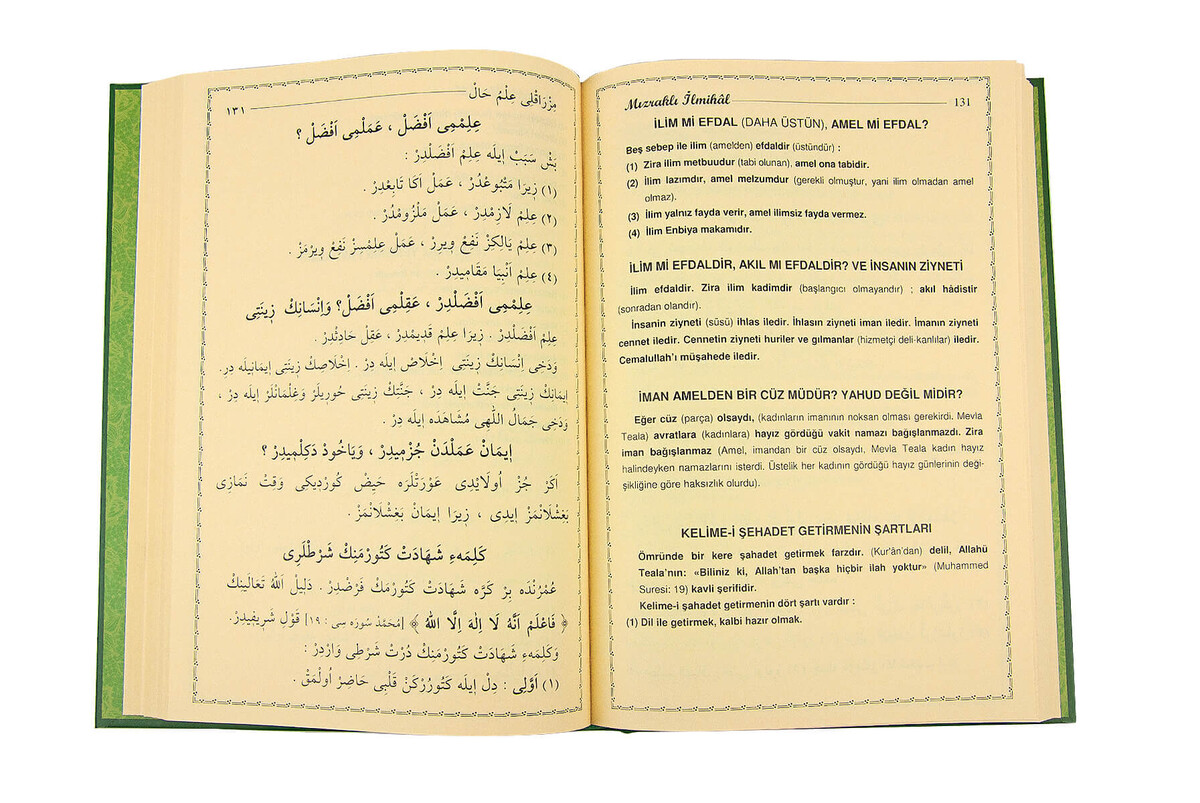 مِزْرَاقْلِى عِلْمُ حَالْ ١٣١
عِلِمْمِى اَفْضَلْ ، عَمَلْمِى اَفْضَلْ ؟
بَشْ سَبَبْ اِيلَه عِلِمْ اَفْضَلْدِرْ :
(١) زِيرَا مَتْبُوعْدُرْ ، عَمَلْ اَكَا تَابِعْدِرْ .
(٢) عِلِمْ لَازِمْدِرْ ، عَمَلْ مَلْزُومْدُرْ .
(٣) عِلِمْ يَالِكِزْ نَفِعْ وِيرِرْ ، عَمَلْ عِلِمْسِزْ نَفِعْ وِيرْمَزْ .
(٤) عِلِمْ اَنْبِيَا مَقَامِيدِرْ .
عِلِمْمِى اَفْضَلْدِرْ ، عَقِلْمِى اَفْضَلْ؟ وَاِنْسَانِكْ زِينَتِى
عِلِمْ اَفْضَلْدِرْ . زِيرَا عِلِمْ قَدِيمْدِرْ ، عَقِلْ حَادِثْدِرْ .
وَدَخِى اِنْسَانِكْ زِينَتِى اِخْلَاصْ اِيلَه دِرْ . اِخْلَاصِكْ زِينَتِى اِيمَانِيلَه دِرْ.
اِيمَانِكْ زِينَتِى جَنَّتْ اِيلَه دِرْ ، جَنَّتِكْ زِينَتِى حُورِيلَرْ وَغِلْمَانْلَرْ اِيلَه دِرْ ،
وَدَخِى جَمَالُ اللّٰهِى مُشَاهَدَه اِيلَه دِرْ .
اِيمَانْ عَمَلْدَنْ جُزْمِيدِرْ ، وَيَاخُودْ دَكِلْمِيدِرْ ؟
اَكَرْ جُزْ اُولَايْدِى عَوْرَتْلَرَه حَيِضْ كُورْدِيكِى وَقِتْ نَمَازِى
بَغِشْلَانْمَزْ اِيدِى ، زِيرَا اِيمَانْ بَغِشْلَانْمَزْ .
كَلِمَهءِ شَهَادَتْ كَتُورْمَنِكْ شَرْطْلَرِى
عُمْرُنْدَه بِرْ كَرَّه شَهَادَتْ كَتُورْمَكْ فَرْضْدِرْ . دَلِيلْ اَللّٰهُ تَعَالَينِكْ
﴿ فَاعْلَمْ اَنَّهُ لَا اِلٰهَ اِلَّا اللّٰهُ ﴾ [مُحَمَّدْ سُورَه سِى : ١٩] قَوْلِ شَرِيفِيدِرْ.
وَكَلِمَهءِ شَهَادَتْ كَتُورْمَنِكْ دُرْتْ شَرْطِى وَارْدِرْ :
(١) اَوَّلِى : دِلْ اِيلَه كَتُورُرْكَنْ قَلْبِى حَاضِرْ اُولْمَقْ .
Mızraklı İlmihâl 131
İLİM Mİ EFDAL (DAHA ÜSTÜN), AMEL Mİ EFDAL?
Beş sebep ile ilim (amelden) efdaldir (üstündür) :
(1) Zira ilim metbuudur (tabi olunan), amel ona tabidir.
(2) İlim lazımdır, amel melzumdur (gerekli olmuştur, yani ilim olmadan amel
olmaz).
(3) İlim yalnız fayda verir, amel ilimsiz fayda vermez.
(4) İlim Enbiya makamıdır.
İLİM Mİ EFDALDİR, AKIL MI EFDALDİR? VE İNSANIN ZİYNETİ
İlim efdaldir. Zira ilim kadimdir (başlangıcı olmayandır) ; akıl hâdistir
(sonradan olandır).
İnsanin ziyneti (süsü) ihlas iledir. İhlasın ziyneti iman iledir. İmanın ziyneti
cennet iledir. Cennetin ziyneti huriler ve gılmanlar (hizmetçi deli-kanlılar) iledir.
Cemalullah'ı müşahede iledir.
İMAN AMELDEN BİR CÜZ MÜDÜR? YAHUD DEĞİL MİDİR?
Eğer cüz (parça) olsaydı, (kadınların imanının noksan olması gerekirdi. Mevla
Teala) avratlara (kadınlara) hayız gördüğü vakit namazı bağışlanmazdı. Zira
iman bağışlanmaz (Amel, imandan bir cüz olsaydı, Mevla Teala kadın hayız
halindeyken namazlarını isterdi. Üstelik her kadının gördüğü hayız günlerinin deği-
şikliğine göre haksızlık olurdu).
KELİME-İ ŞEHADET GETİRMENİN ŞARTLARI
Ömründe bir kere şahadet getirmek farzdır. (Kur'ân'dan) delil, Allahü
Teala'nın: «Biliniz ki, Allah'tan başka hiçbir ilah yoktur» (Muhammed
Suresi: 19) kavli şerifidir.
Kelime-i şehadet getirmenin dört şartı vardır :
(1) Dil ile getirmek, kalbi hazır olmak.